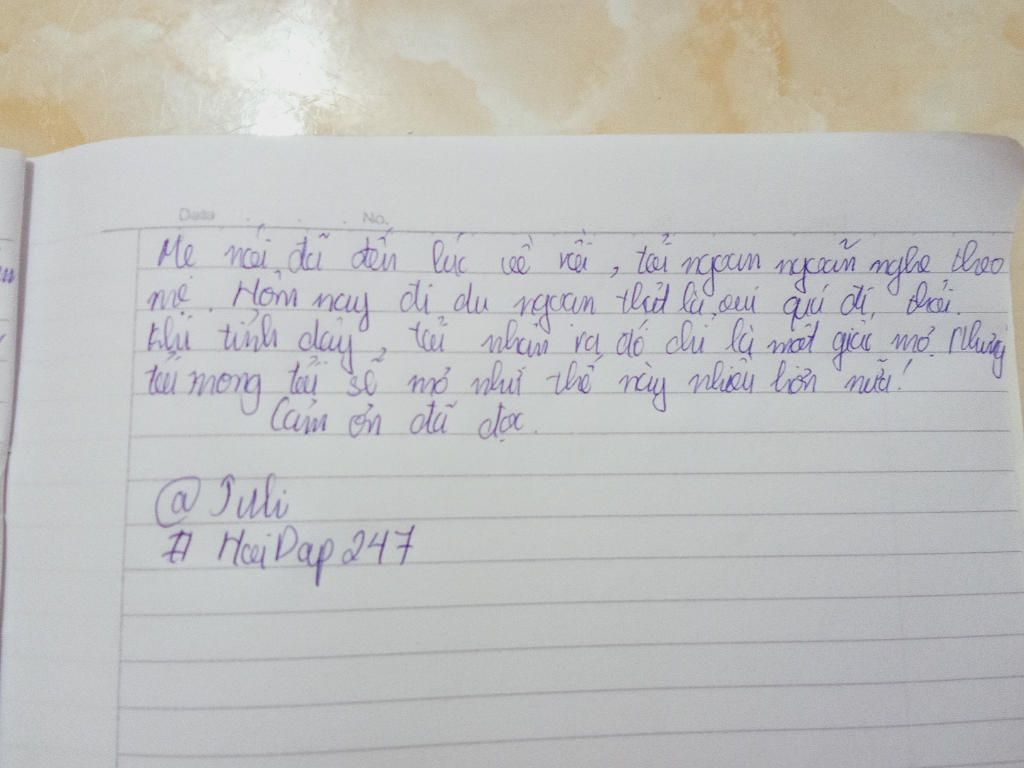 Date . . . No.
Mẹ nói đã đến lúc về rồi, tôi ngoan ngoãn nghe theo
mẹ. Hôm nay đi du ngoạn thật là vui quá đi, thôi.
Khi tỉnh dậy, tôi nhận ra đó chỉ là một giấc mơ. Nhưng
tôi mong tôi sẽ mơ như thế này nhiều hơn nữa!
Cảm ơn đã đọc.
@Juli
# HoiDap247